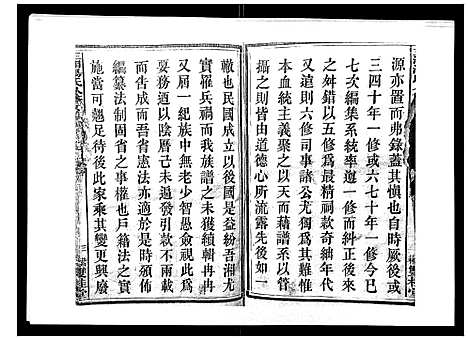 源亦置而弗錄蓋其慎也自時厥後或
三四十年一修或六七十年一修今已
七次編集系統率遵一修而糾正後來
之舛錯以五修爲最精祠款奇絀年代
又遠則六修司事諸公尤獨爲其難惟
本血統主義聚之以天而藉譜系以管
攝之則皆由道德心所流露先後如一
轍也民國成立以後國是益紛吾湘尤
實罹兵禍而我族譜之未獲續輯冉冉
者居一紀族中無老少智愚僉視此爲
要務迺以陽厯二月未遑發引款不載
而告成而吾省憲法亦適於是時頒佈
編纂法制固省之事權也戶籍法之實
施當可翹足待後此家乘其變更興廢